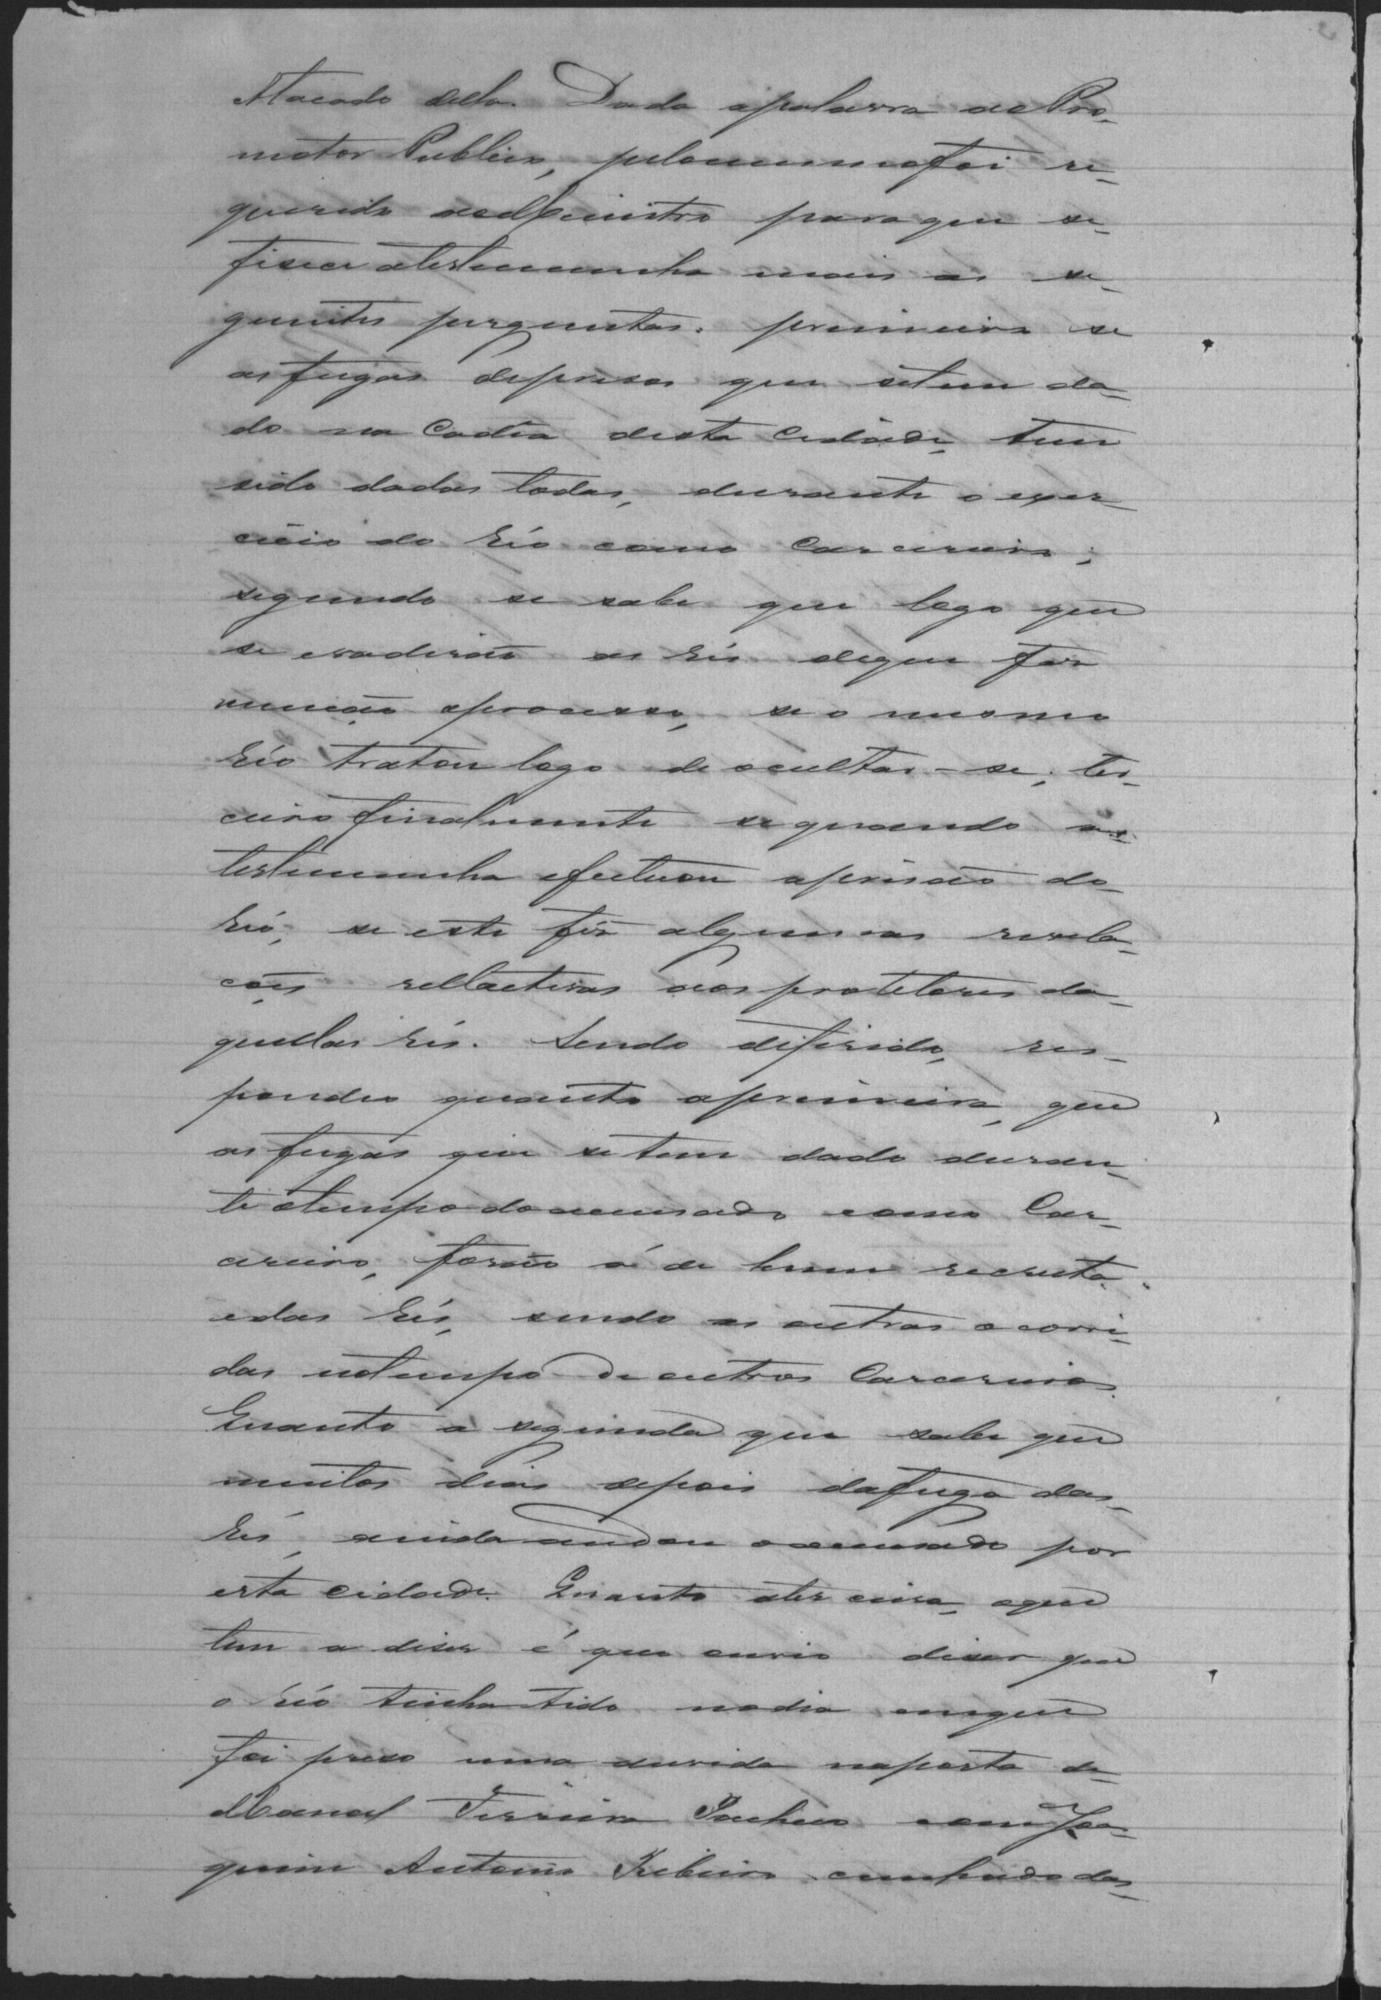 atacado della. Dada apalavra ao Pro-
motor Publico, pelomesmofoi re-
querido aodministro paraque se-
fisece atestemunha mais as se-
guintes perguntas: primeira se
asfugas depresos que setem da-
do na Cadia desta Cidade, tem
sido dadas todas, durante o exer-
cicio do Réo como Carcereiro;
segundo se sabe que logo que
se evadirão as Rés deque faz
menção aprocesso, se o mesmo
Réo tratou logo de occultar-se; ter-
ceiro finalmente sequando a
testemunha efectuou aprisão do
Réo, se este fez algumas revela-
ções rellactivas aos protetores da-
quellas Rés. Sendo diferido, res-
pondeo quanto aprimeira, que
asfugas que setem dado duran-
te otempo doaccusado como Car-
cereiro, forão á de hum recruta
edas Rés, sendo as outras ocorri-
das notempo de outros Carcereiros.
Quanto a segunda que sabe que
muitos dias depois dafuga das
Rés, ainda andou oaccusado por
esta cidade. Quanto aterceira, oque
tem a diser é que ouvio diser que
o Réo tinha tido nodia emque
foi preso uma duvida naporta de
Manoel Ferreira Pacheco com Joa-
quim Antonio Ribeiro cunhado das